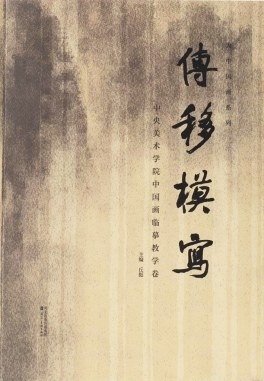 傳移模寫
中央美术学院中国画临摹教学卷
主编